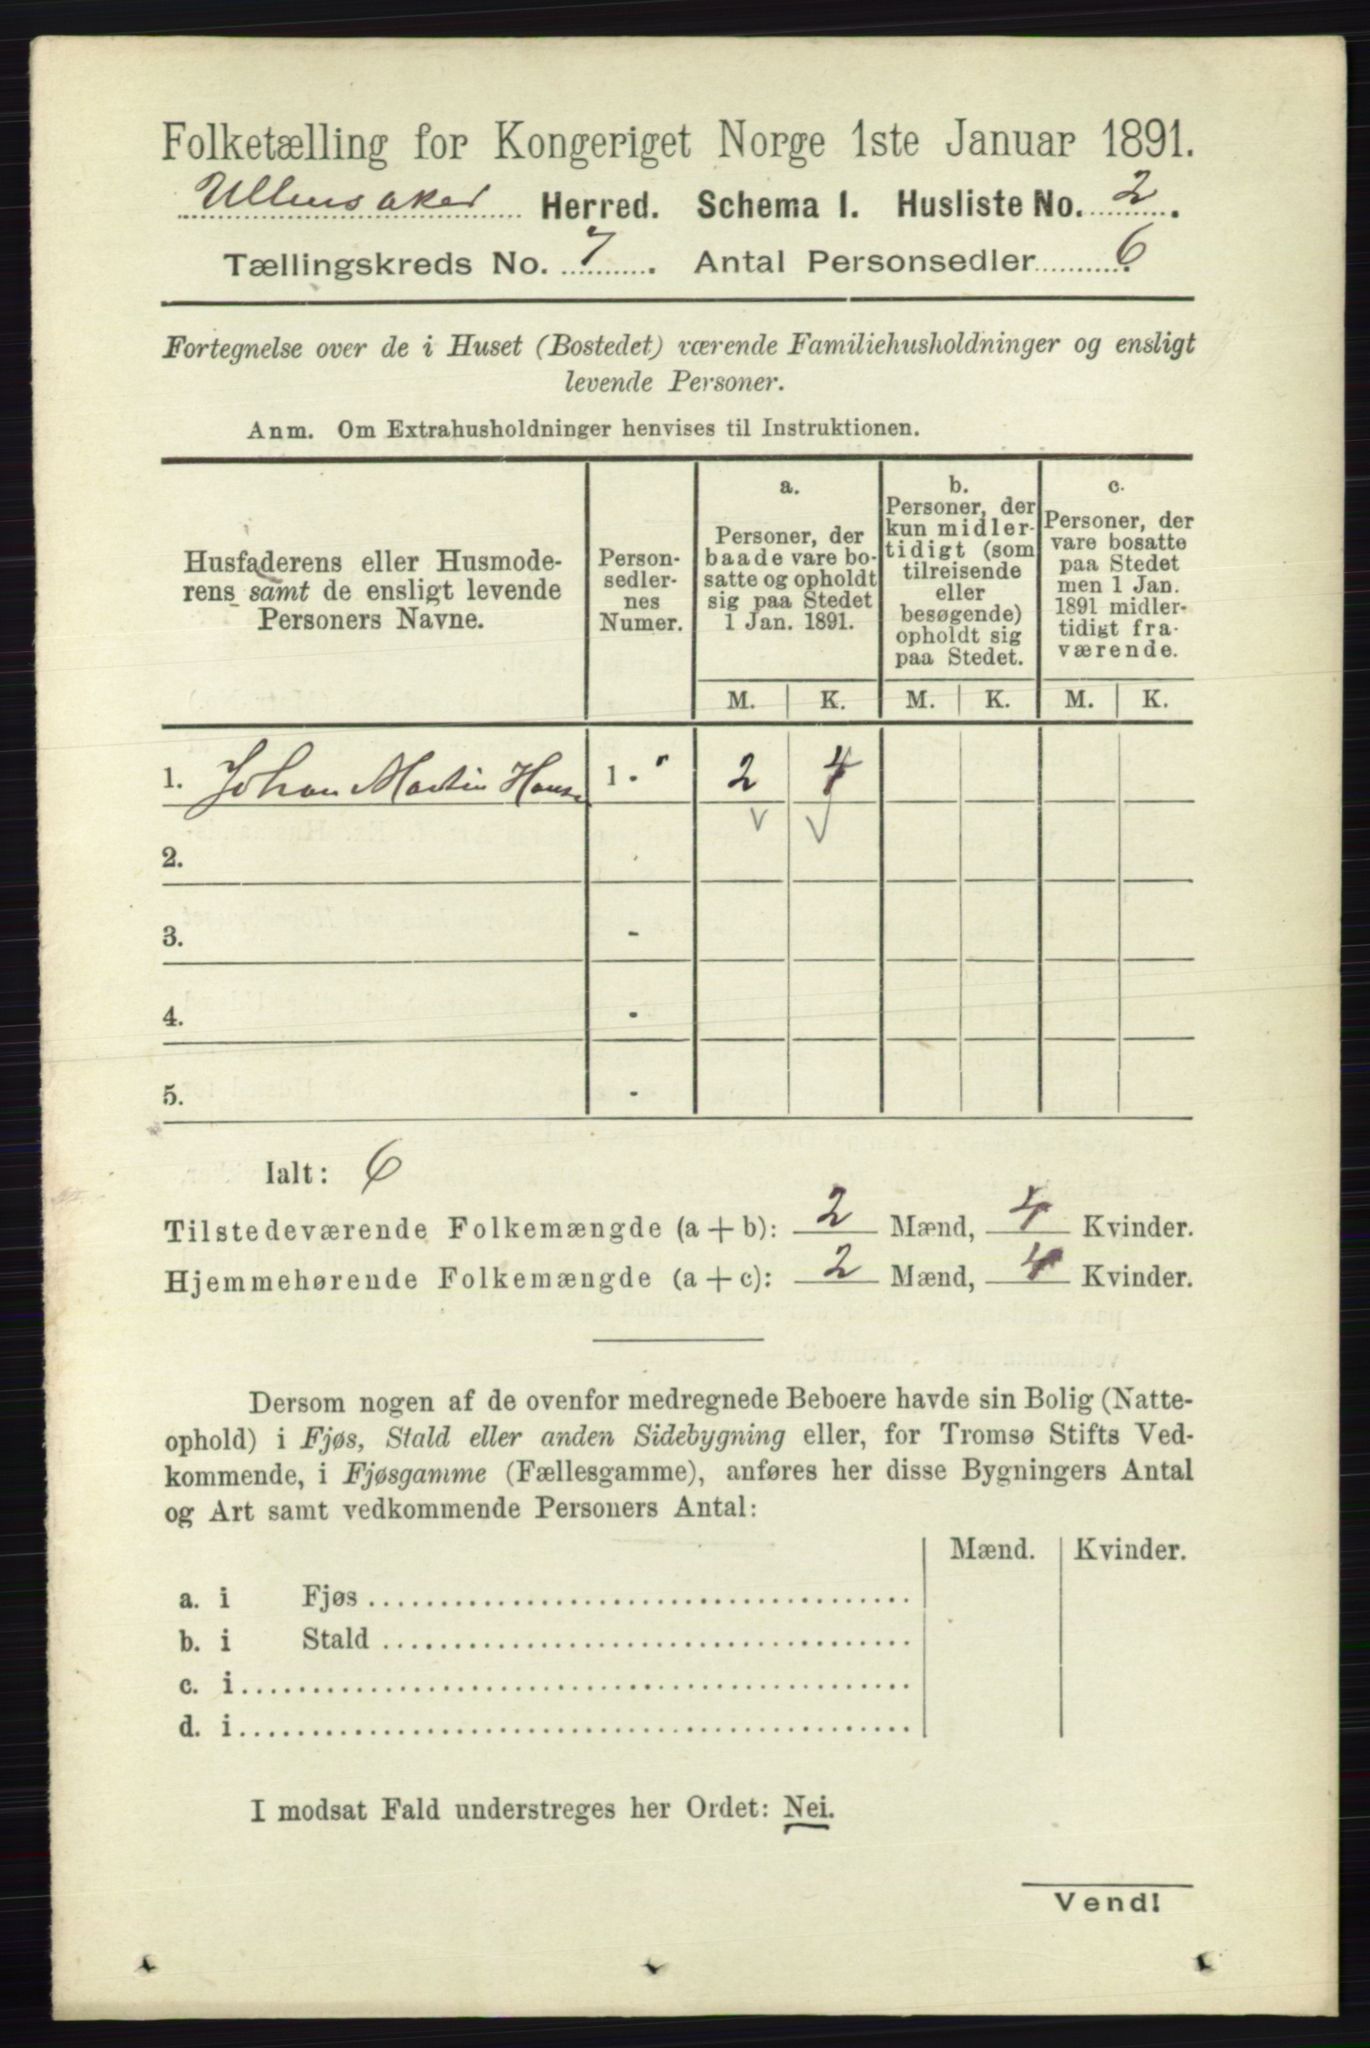 Folketælling for Kongeriget Norge 1ste Januar 1891.
Ullensaker Herred. Schema I. Husliste No. 2.
Tællingskreds No. 7. Antal Personsedler 6
Fortegnelse over de i Huset (Bostedet) værende Familiehusholdninger og ensligt
levende Personer.
Anm. Om Extrahusholdninger henvises til Instruktionen.
Husfaderens eller Husmode-
rens samt de ensligt levende
Personers Navne.
Person-
sedler-
nes
Numer.
a.
Personer, der
baade vare bo-
satte og opholdt
sig paa Stedet
1 Jan. 1891.
b.
Personer, der
kun midler-
tidigt (som
tilreisende
eller
besøgende)
opholdt sig
paa Stedet.
c.
Personer, der
vare bosatte
paa Stedet
men 1 Jan.
1891 midler-
tidigt fra-
værende.
M. K. M. K. M. K.
1. Johan Martin Hansen 1 - " 2 4
2.
3. -
4. -
5. -
Ialt: 6
Tilstedeværende Folkemængde (a + b): 2 Mænd, 4 Kvinder.
Hjemmehørende Folkemængde (a + c): 2 Mænd, 4 Kvinder.
Dersom nogen af de ovenfor medregnede Beboere havde sin Bolig (Natte-
ophold) i Fjøs, Stald eller anden Sidebygning eller, for Tromsø Stifts Ved-
kommende, i Fjøsgamme (Fællesgamme), anføres her disse Bygningers Antal
og Art samt vedkommende Personers Antal:
Mænd. Kvinder.
a. i Fjøs
b. i Stald
c. i
d. i
I modsat Fald understreges her Ordet: Nei.
Vend!